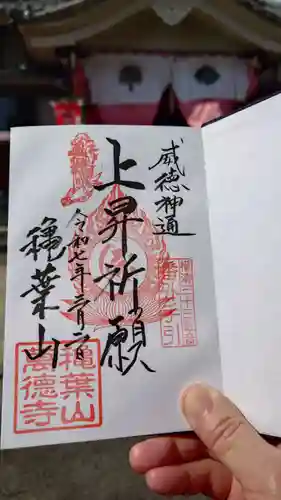 威徳神通
上昇祈願
令和七年三月二日
穐葉山
穐葉山
高徳寺